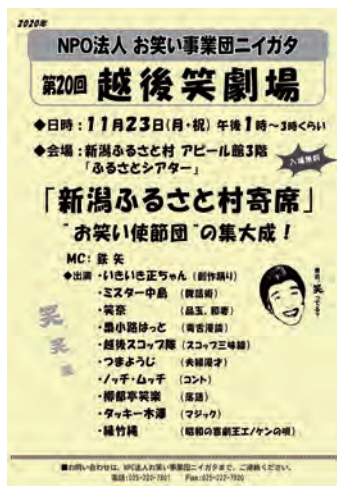 2020年
NPO法人 お笑い事業団ニイガタ
第20回 越後笑劇場
◆日時：11月23日(月・祝) 午後1時～3時くらい
◆会場：新潟ふるさと村 アピール館3階
「ふるさとシアター」
入場無料
「新潟ふるさと村寄席」
"お笑い使節団"の集大成！
MC: 鉄 矢
◆出演 ・いきいき正ちゃん (創作踊り)
・ミスター中島 (腹話術)
・笑奈
・桑小路はっと (毒舌漫談)
・越後スコップ隊 (スコップ三味線)
・つまようじ (夫婦漫才)
・ノッチ・ムッチ (コント)
・柳都亭笑楽 (落語)
・タッキー木澤 (マジック)
・縁竹縄 (昭和の喜劇王エノケンの唄)
笑 笑
■お問い合わせは、NPO法人お笑い事業団ニイガタまで、ご連絡ください。